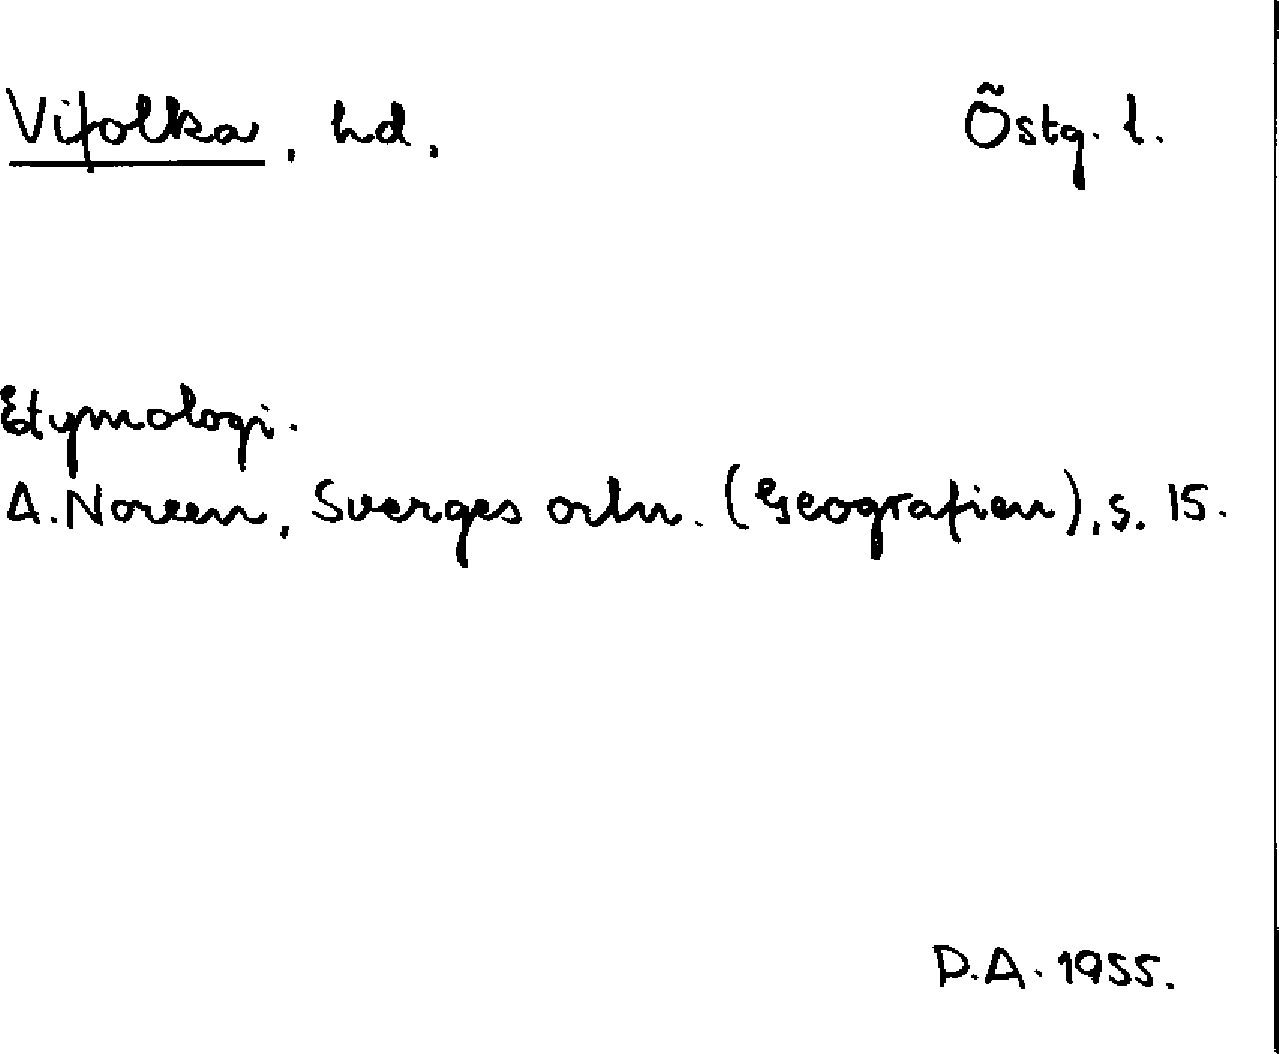 Vifolka, hd. Östg. l.
Etymologi.
A. Noreen, Sverges ortn. (Geografien), s. 15.
D.A. 1955.